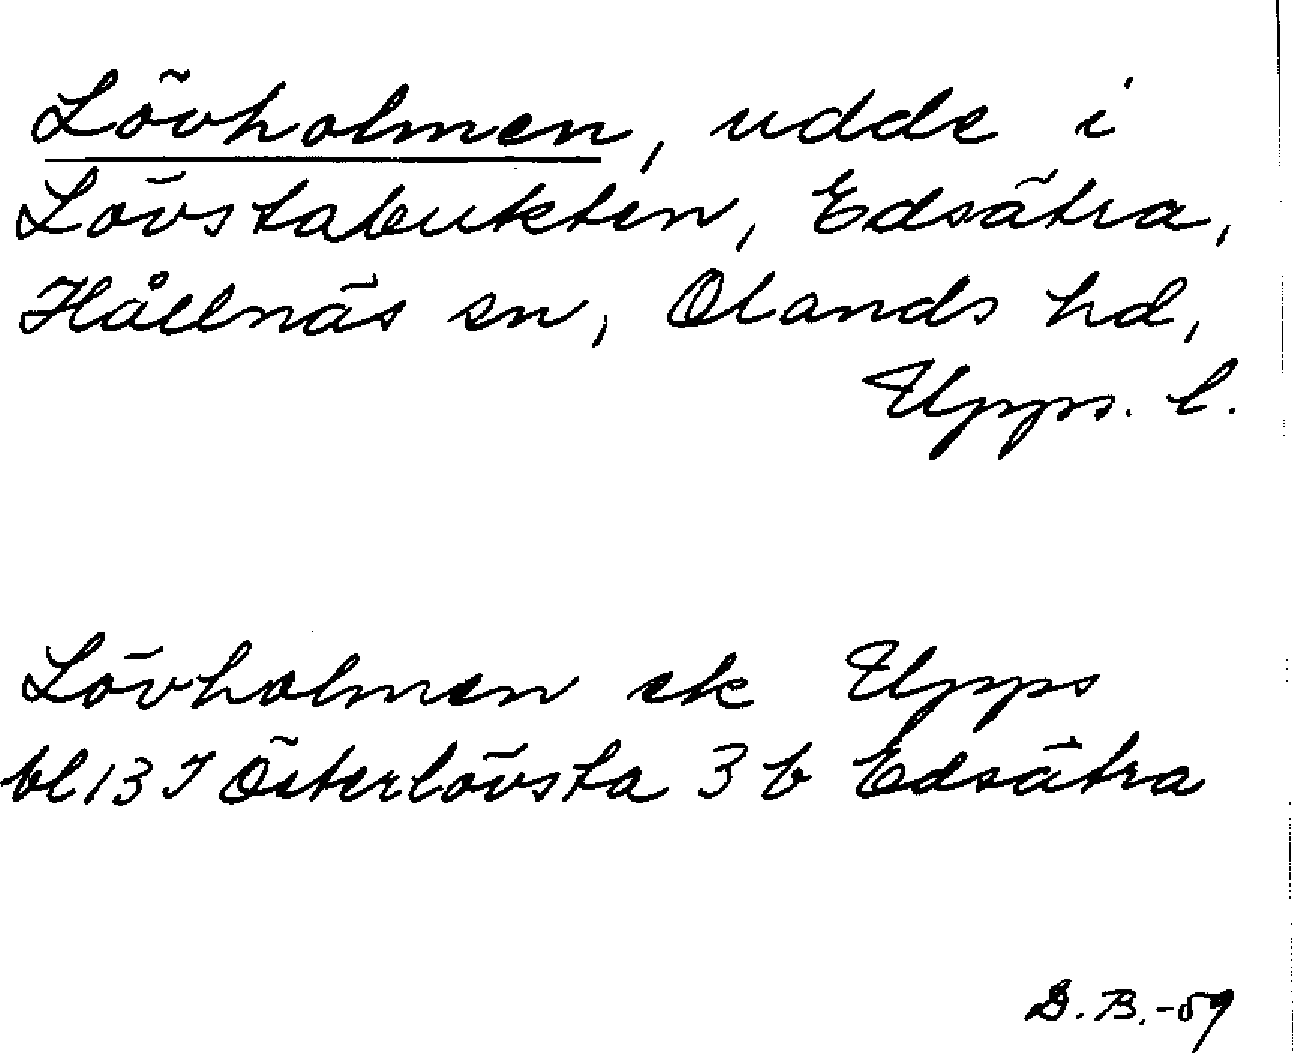 Lövholmen, udde i
Lövstabukten, Edsätra,
Hållnäs sn, Olands hd,
Upps. l.
Lövholmen ek Upps
bl 13 I Österlövsta 3 b Edsätra
D. B. -59